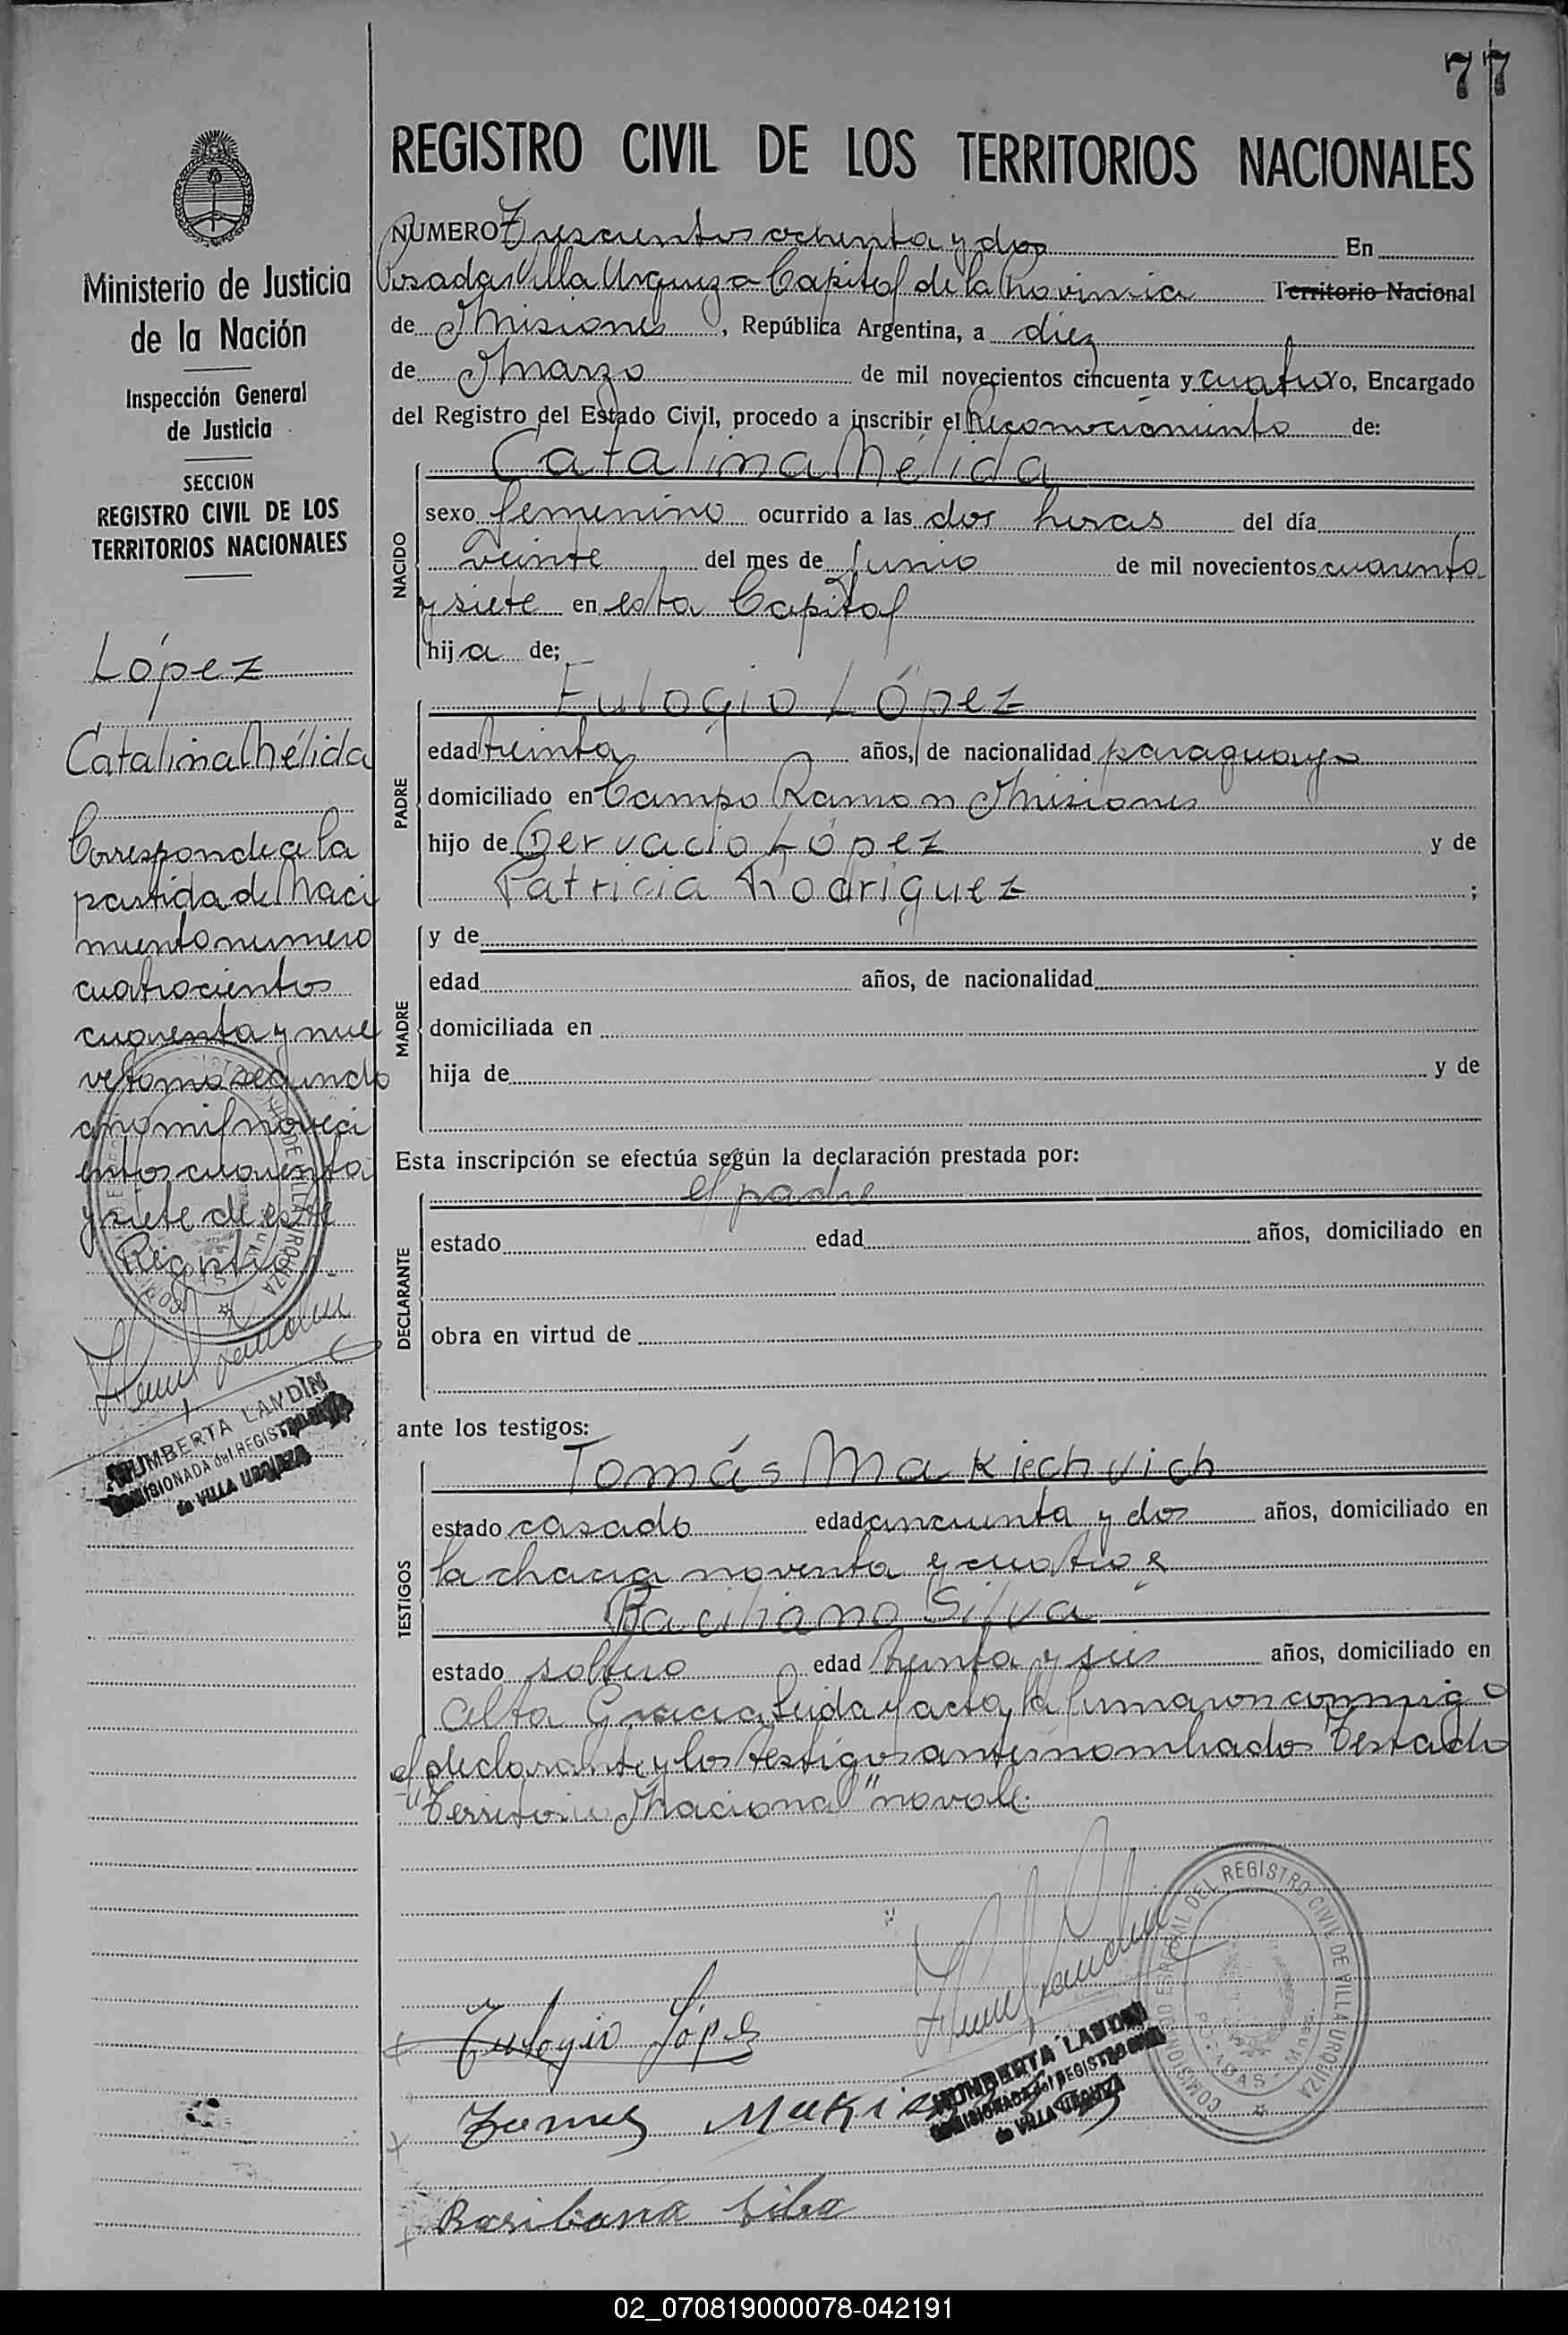 77
REGISTRO CIVIL DE LOS TERRITORIOS NACIONALES
Ministerio de Justicia
de la Nación
Inspección General
de Justicia
SECCION
REGISTRO CIVIL DE LOS
TERRITORIOS NACIONALES
López
Catalina Nélida
Corresponde a la
partida de Naci
miento numero
cuatrocientos
cuarenta y nue
ve tomo segundo
año mil noveci
entos cuarenta
y siete de este
Registro
HUMBERTA LANDIN
COMISIONADA del REGISTRO CIVIL
de VILLA URQUIZA
NUMERO Trescientos ochenta y dos En
Posadas Villa Urquiza Capital de la Provincia Territorio Nacional
de Misiones, República Argentina, a diez
de Marzo de mil novecientos cincuenta y cuatro Yo, Encargado
del Registro del Estado Civil, procedo a inscribir el Reconocimiento de:
NACIDO
Catalina Nélida
sexo femenino ocurrido a las dos horas del día
veinte del mes de Junio de mil novecientos cuarenta
y siete en esta Capital
hija de;
PADRE
Eulogio López
edad treinta años, de nacionalidad paraguayo
domiciliado en Campo Ramon Misiones
hijo de Gervacio López y de
Patricia Rodriguez ;
MADRE
y de
edad años, de nacionalidad
domiciliada en
hija de y de
Esta inscripción se efectúa según la declaración prestada por:
DECLARANTE
el padre
estado edad años, domiciliado en
obra en virtud de
ante los testigos:
TESTIGOS
Tomás Makiechvich
estado casado edad cincuenta y dos años, domiciliado en
la chacra noventa y cuatro e
Baciliano Silva
estado soltero edad treinta y seis años, domiciliado en
Alta Gracia Leida el acta, la firmaron conmigo
el declarante y los testigos antes nombrados Testado
"Territorio Nacional" no vale.
COMISIONADO ESPECIAL DEL REGISTRO CIVIL DE VILLA URQUIZA
POSADAS
Eulogio López
HUMBERTA LANDIN
COMISIONADA del REGISTRO CIVIL
de VILLA URQUIZA
Silva
02_070819000078-042191